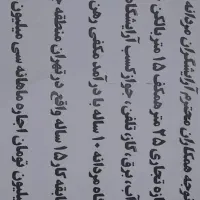 توجه همکاران محترم آرایشگران مردانه
تجاری ۲۵ متر همکف ۱۵ متر بالکن
آب، برق، گاز، تلفن، جواز کسب
مردانه ۱۰ ساله با درآمد مکفی رهن
کار ۱۵ ساله واقع در تهران منطقه
میلیون تومان اجاره ماهانه سی میلیون